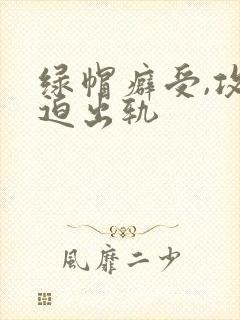 绿帽癖受,攻
迫出轨
風靡二少